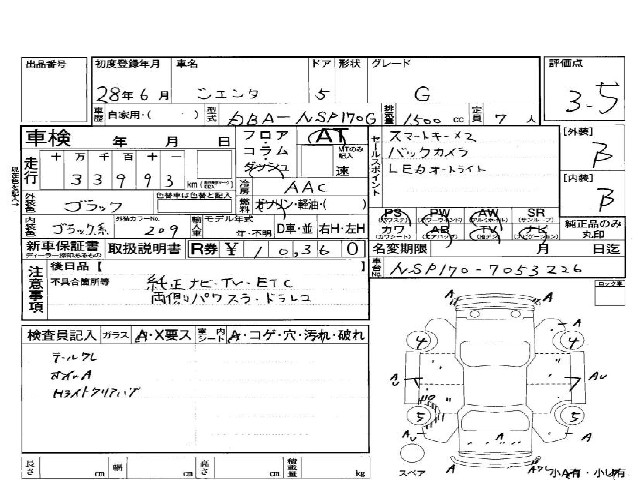 出品番号 初度登録年月 車名 ドア 形状 グレード 評価点
28年6月 シエンタ 5 G 3-5
車歴 自家用・( ・ ) 型式 DBA-NSP170G 排気量 1500 cc 定員 7 人
車検 年 月 日 フロア コラム ダッシュ AT MTのみ記入 速
走行 十 万 千 百 十 一
33993 km
冷房 AAC
外装色 ブラック 色替車は色替と記入 燃料 ガソリン・軽油・( )
内装色 ブラック系 外装カラーNo. 209 輸入車 モデル年式 年・不明 D車・並 右H・左H
セールスポイント
スマートキー×2
バックカメラ
LEDオートライト
[外装] B
[内装] B
PS PW AW SR
カワ AB TV ナビ
純正品のみ丸印
新車保証書 取扱説明書 R券 ¥10,360 名変期限 月 日迄
ディーラー捺印あるもの
注意事項 後日品【
不具合箇所等
純正ナビ・TV・ETC
両側パワスラ・ドラレコ
車台No. NSP170-7053226
検査員記入 ガラス A・X要ス 室内シート A・コゲ・穴・汚れ・破れ
長さ cm 幅 cm 高さ cm 積載量 kg
A
4 4
A
U AU
7
5 5
A A
スペア